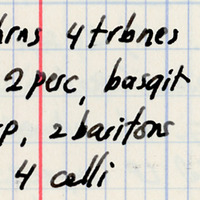 hrns 4 trbnes
2 perc, basgit
p, 2 baritons
4 celli